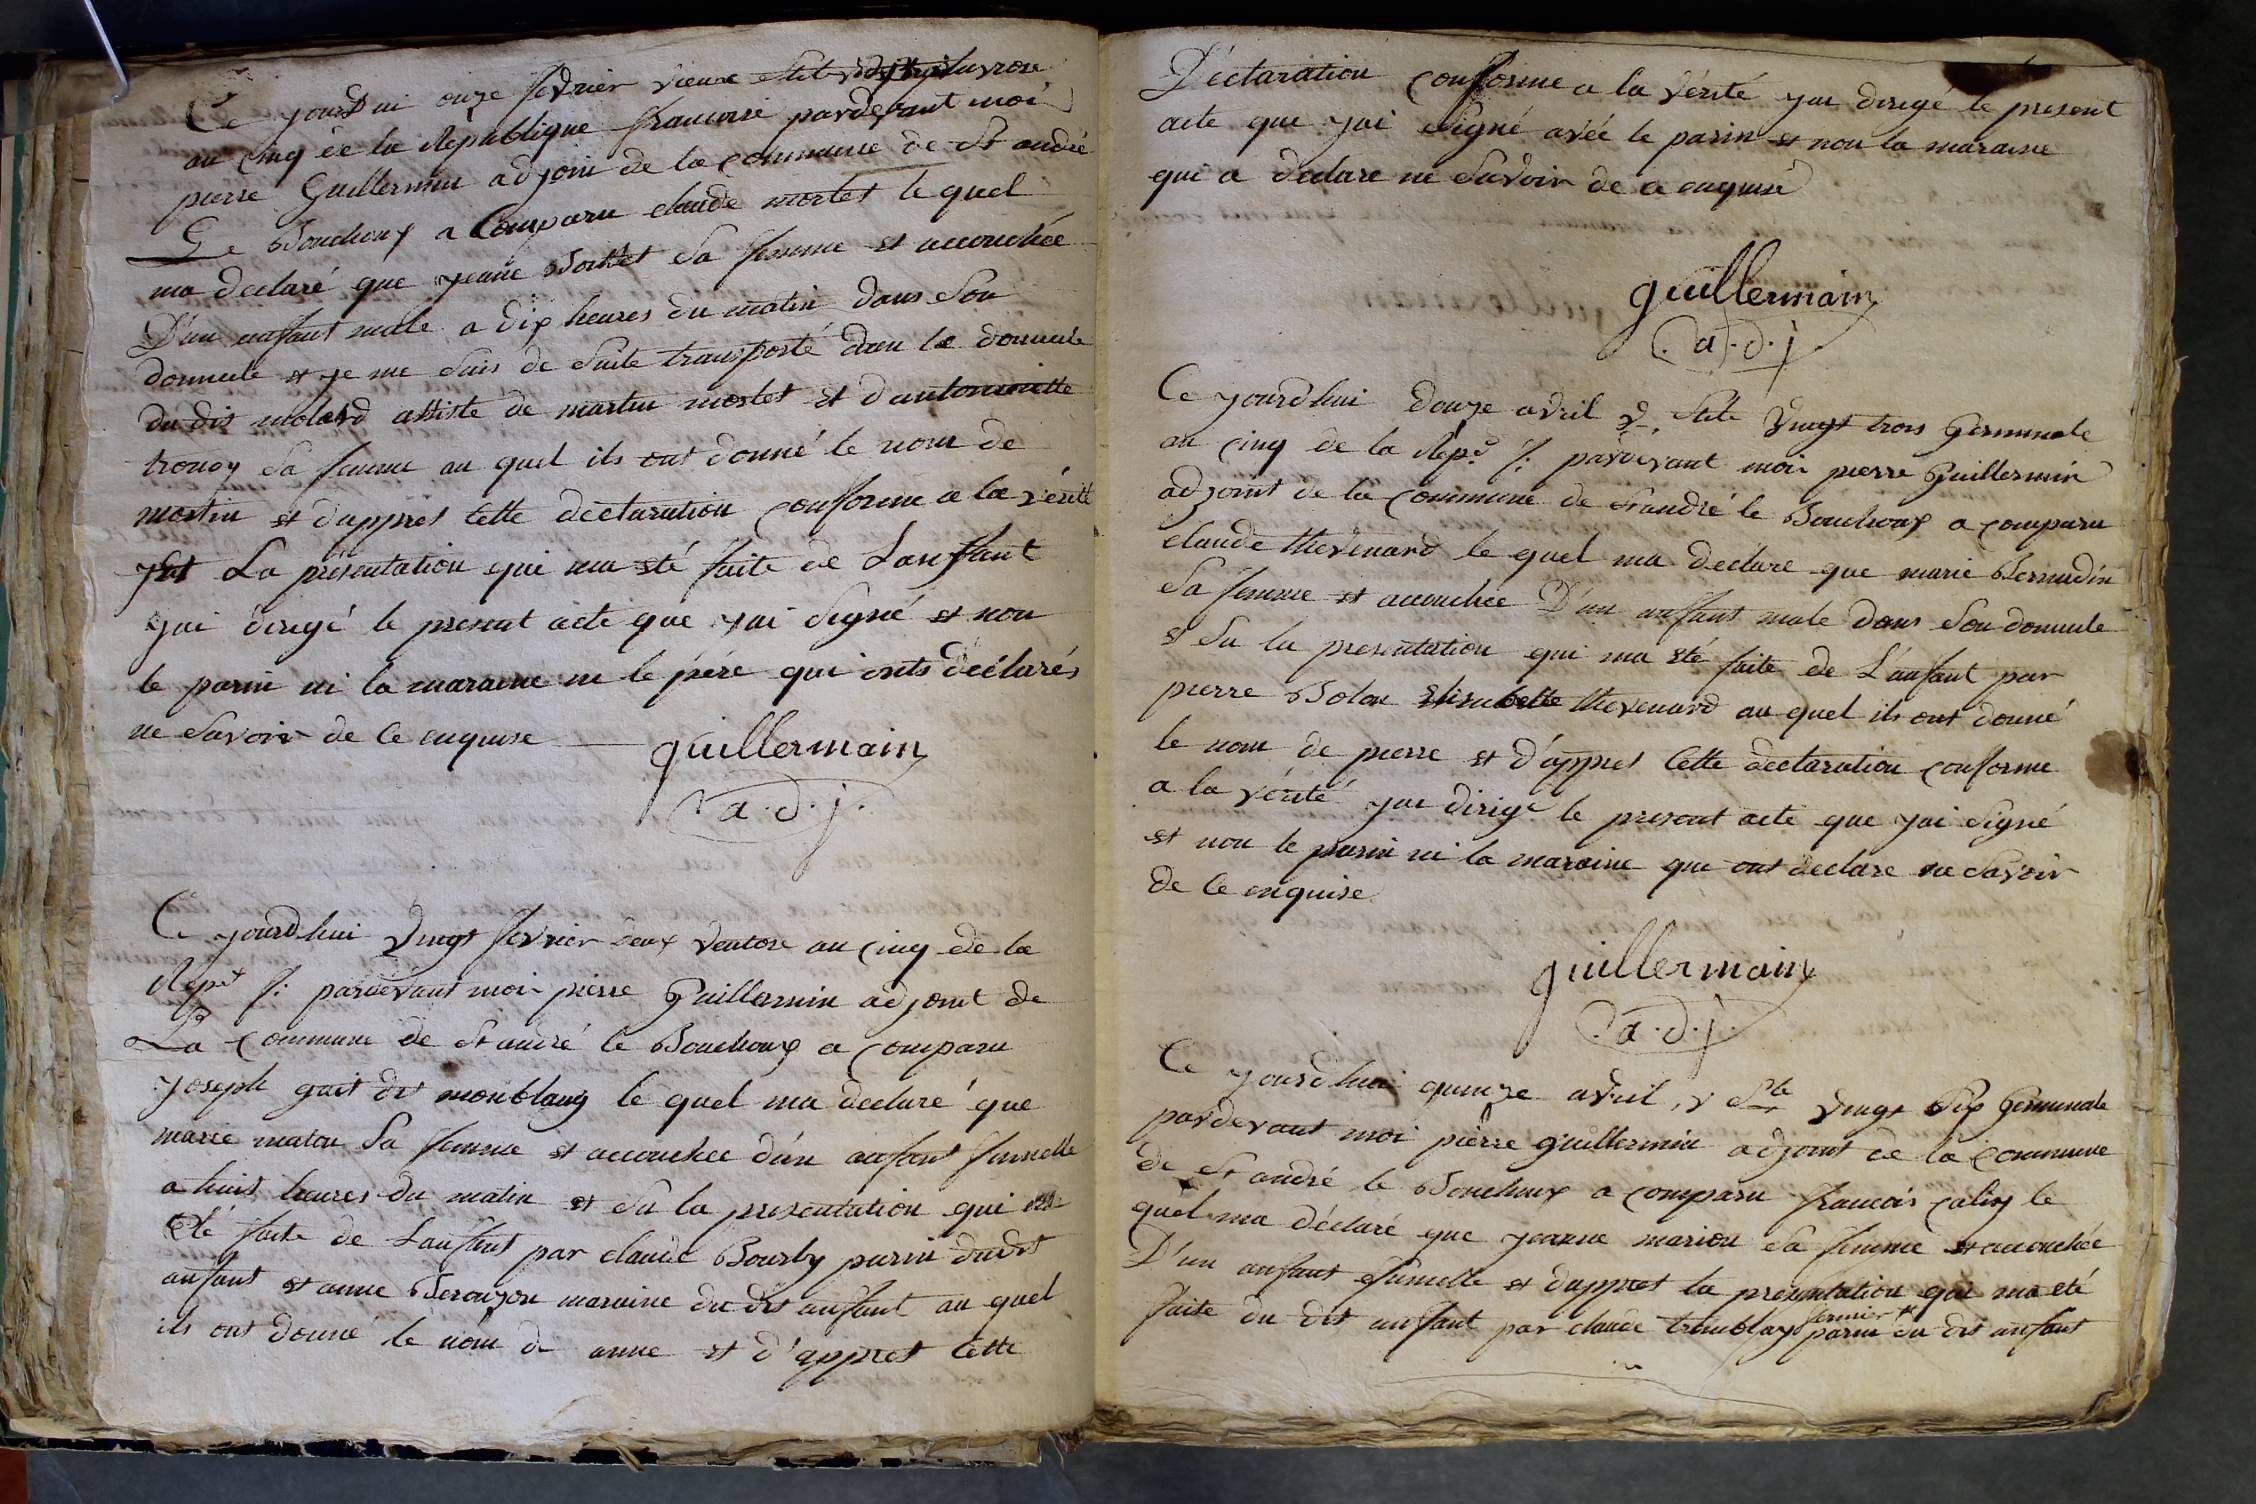 Ce jourdhui onze fevrier vieux stile pluviose
an cinq de la Republique francaise pardevant moi
pierre Guillermin adjoin de la commune de St andré
Le Bouchoux a Comparu claude mortet le quel
ma declaré que jeanne sa femme et accouchée
D'un enfant male a dix heures du matin dans son
domicile et je me suis de suite transporté dan le domicile
du dit molard assiste de martin mortet et d antoinette
sa femme au quel ils ont donné le nom de
martin et dappres cette declaration conforme a la vérité
La présentation qui ma eté faite de Lanffant
jai dirigé le present acte que jai signé et non
le parin ni la maraine ni le pére qui onts déclarés
ne savoir de ce enquise
guillermain
a.d.j.
Ce jourdhui vingt fevrier deux ventose an cinq de la
Repe f: pardevant moi pierre Guillermin adjoint de
La commune de St andré le Bouchoux a comparu
joseph guit dit monblanq le quel ma declaré que
marie maton sa femme et accouchee d'un anfant femelle
a huit heures du matin et su la presentation qui ma
été faite de Lanfant par claude Bourby parin dudit
anfant et anne Berouzon maraine du dit anfant au quel
ils ont donné le nom de anne et d'appres cette
Déclaration conforme a la vérité jai dirigé le present
acte que jai signé avec le parin et non la maraine
qui a declare ne savoir de ce enquise
guillermain
a.d.j.
Ce jourdhui douze avril v. stile vingt trois Germinale
an cinq de la Repe f: pardevant moi pierre Guillermin
adjoint de la commune de St andré le Bouchoux a comparu
claude thevenard le quel ma declare que marie Bernudin
sa femme et accouchée D'un anfant male dans son domicile
et su la presentation qui ma eté faite de L'anfant par
pierre Bolon elisabette thevenard au quel ils ont donné
le nom de pierre et d'appres cette declaration conforme
a la vérité jai dirigé le present acte que jai signé
et non le parin ni la maraine que ont declare ne savoir
de ce enquise
guillermain
a.d.j.
Ce jourdhui quinze avril, v stle vingt six Germinale
pardevant moi pierre guillermin adjoint de la commune
de St andré le Bouchoux a comparu francois calin le
quel ma déclaré que jeanne marion sa femme et accouchée
D'un anfant femelle et dappres la presentation qui ma eté
faite du dit anfant par claude tremblay fermier et parin du dit anfant